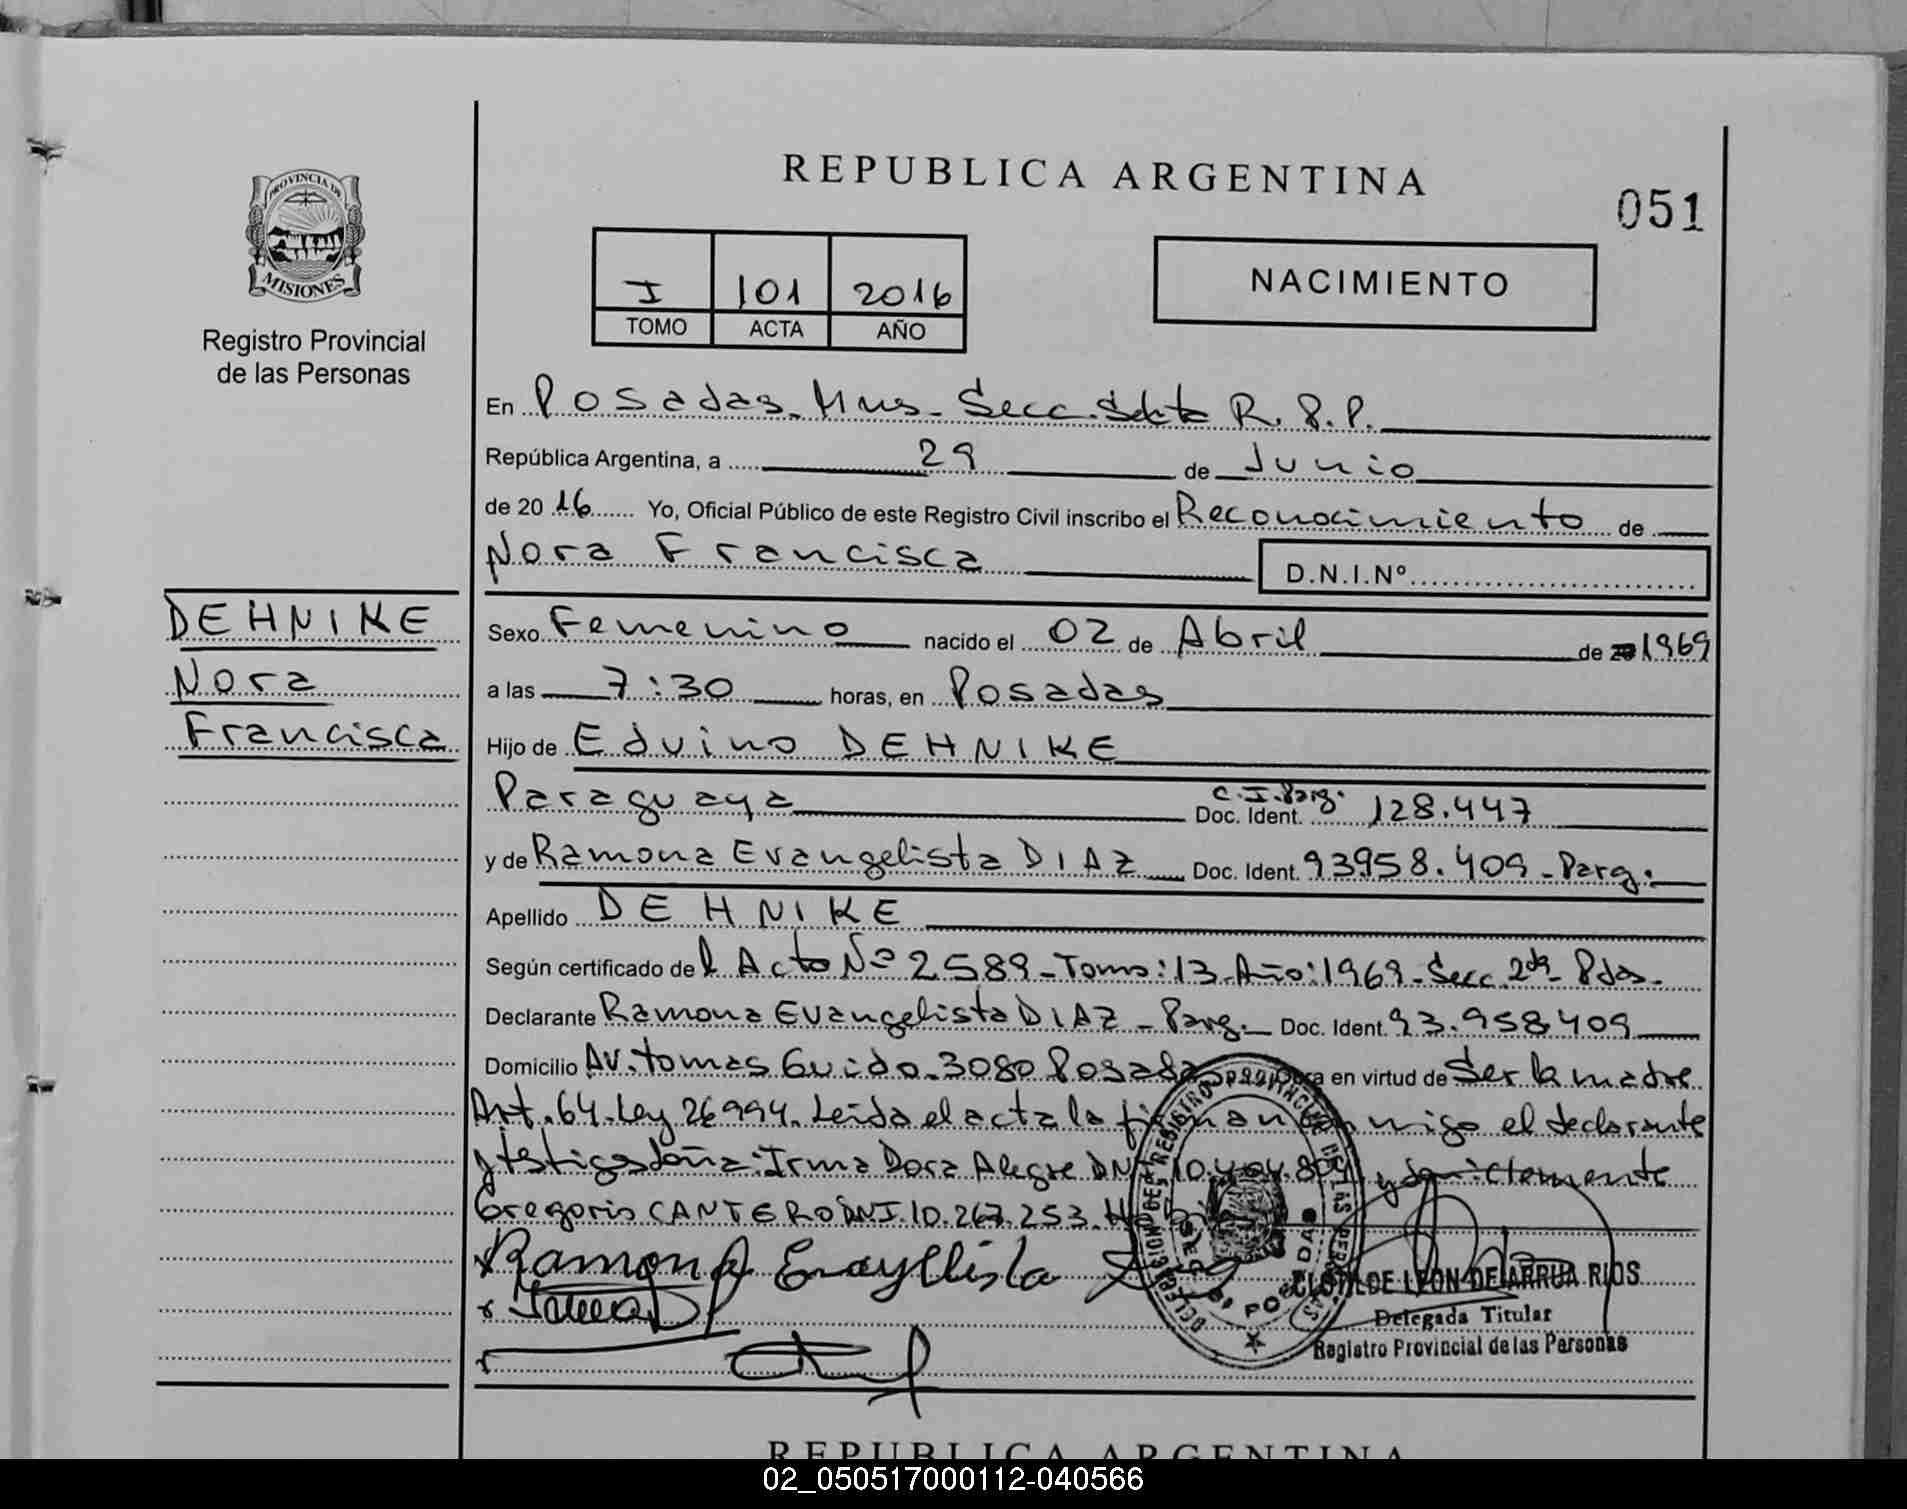 REPUBLICA ARGENTINA
051
PROVINCIA DE
MISIONES
Registro Provincial
de las Personas
I 101 2016
TOMO ACTA AÑO
NACIMIENTO
En Posadas. Mnes. Secc. Sexta R. P. P.
República Argentina, a 29 de Junio
de 2016 Yo, Oficial Público de este Registro Civil inscribo el Reconocimiento de
Nora Francisca D.N.I.Nº
DEHNIKE
Nora
Francisca
Sexo Femenino nacido el 02 de Abril de 1969
a las 7:30 horas, en Posadas
Hijo de Eduino DEHNIKE
Paraguaya C.I. Parg. Doc. Ident. 128.447
y de Ramona Evangelista DIAZ Doc. Ident. 93958.409 - Parg.
Apellido DEHNIKE
Según certificado del Acta Nº 2589 - Tomo: 13 - Año: 1969 - Secc. 2da - Pdas.
Declarante Ramona Evangelista DIAZ - Parg. Doc. Ident. 93.958409
Domicilio AV. Tomas Guido. 3080 Posadas Obra en virtud de Ser la madre
Art. 64. Ley 26994. Leida el acta la firman conmigo el declarante
y testigos doña: Irma Dora Alegre DNI 10.404.804 y don: Clemente
Gregorio CANTERO DNI. 10.267.253.
Ramona Evangelista
DELEGACION DEL REGISTRO PROVINCIAL DE LAS PERSONAS
POSADAS
CLOTILDE LEON DE ARRUA RIOS
Delegada Titular
Registro Provincial de las Personas
REPUBLICA ARGENTINA
02_050517000112-040566